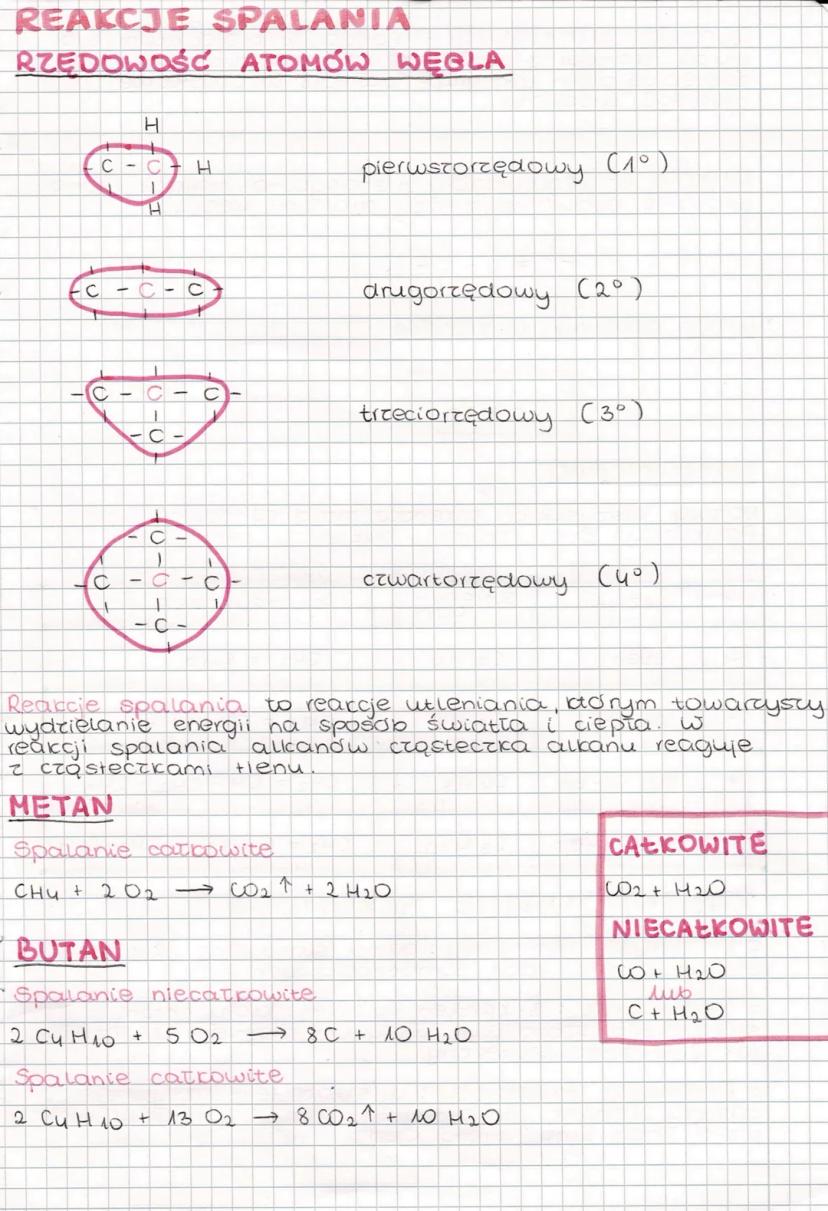 REAKCJE SPALANIA
RZĘDOWOŚĆ ATOMÓW WĘGLA
H
C - C - H
H
pierwszorzędowy (1°)
- C - C - C -
drugorzędowy (2°)
- C - C - C -
- C -
trzeciorzędowy (3°)
- C -
- C - C - C -
- C -
czwartorzędowy (4°)
Reakcje spalania to reakcje utleniania, którym towarzyszy
wydzielanie energii na sposób światła i ciepła. W
reakcji spalania alkanów cząsteczka alkanu reaguje
z cząsteczkami tlenu.
METAN
Spalanie całkowite
CH4 + 2 O2 → CO2↑ + 2 H2O
BUTAN
Spalanie niecałkowite
2 C4H10 + 5 O2 → 8 C + 10 H2O
Spalanie całkowite
2 C4H10 + 13 O2 → 8 CO2↑ + 10 H2O
CAŁKOWITE
CO2 + H2O
NIECAŁKOWITE
CO + H2O
lub
C + H2O